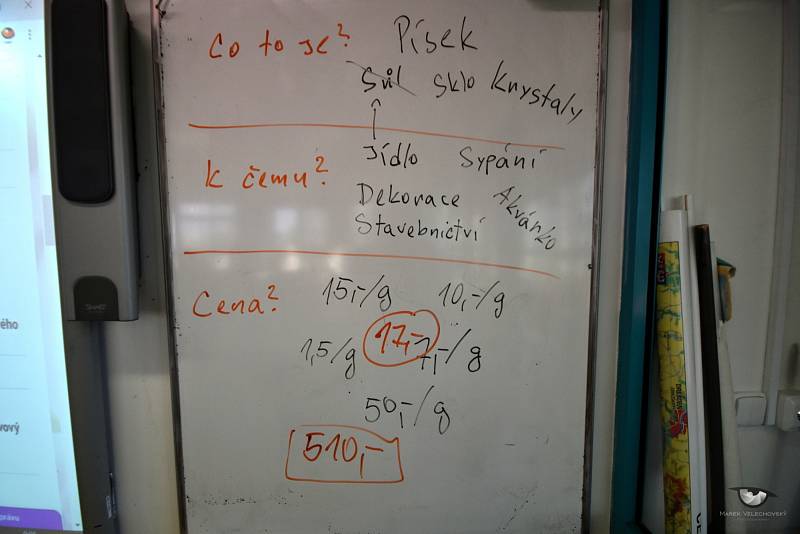 Co to je? Písek
Sůl sklo Krystaly
K čemu? Jídlo Sypání
Dekorace Akvárko
Stavebnictví
Cena? 15,-/g 10,-/g
1,5/g 17,- 1,-/g
50,-/g
510,-
ého
vový
SMART
MAREK VELECHOVSKÝ